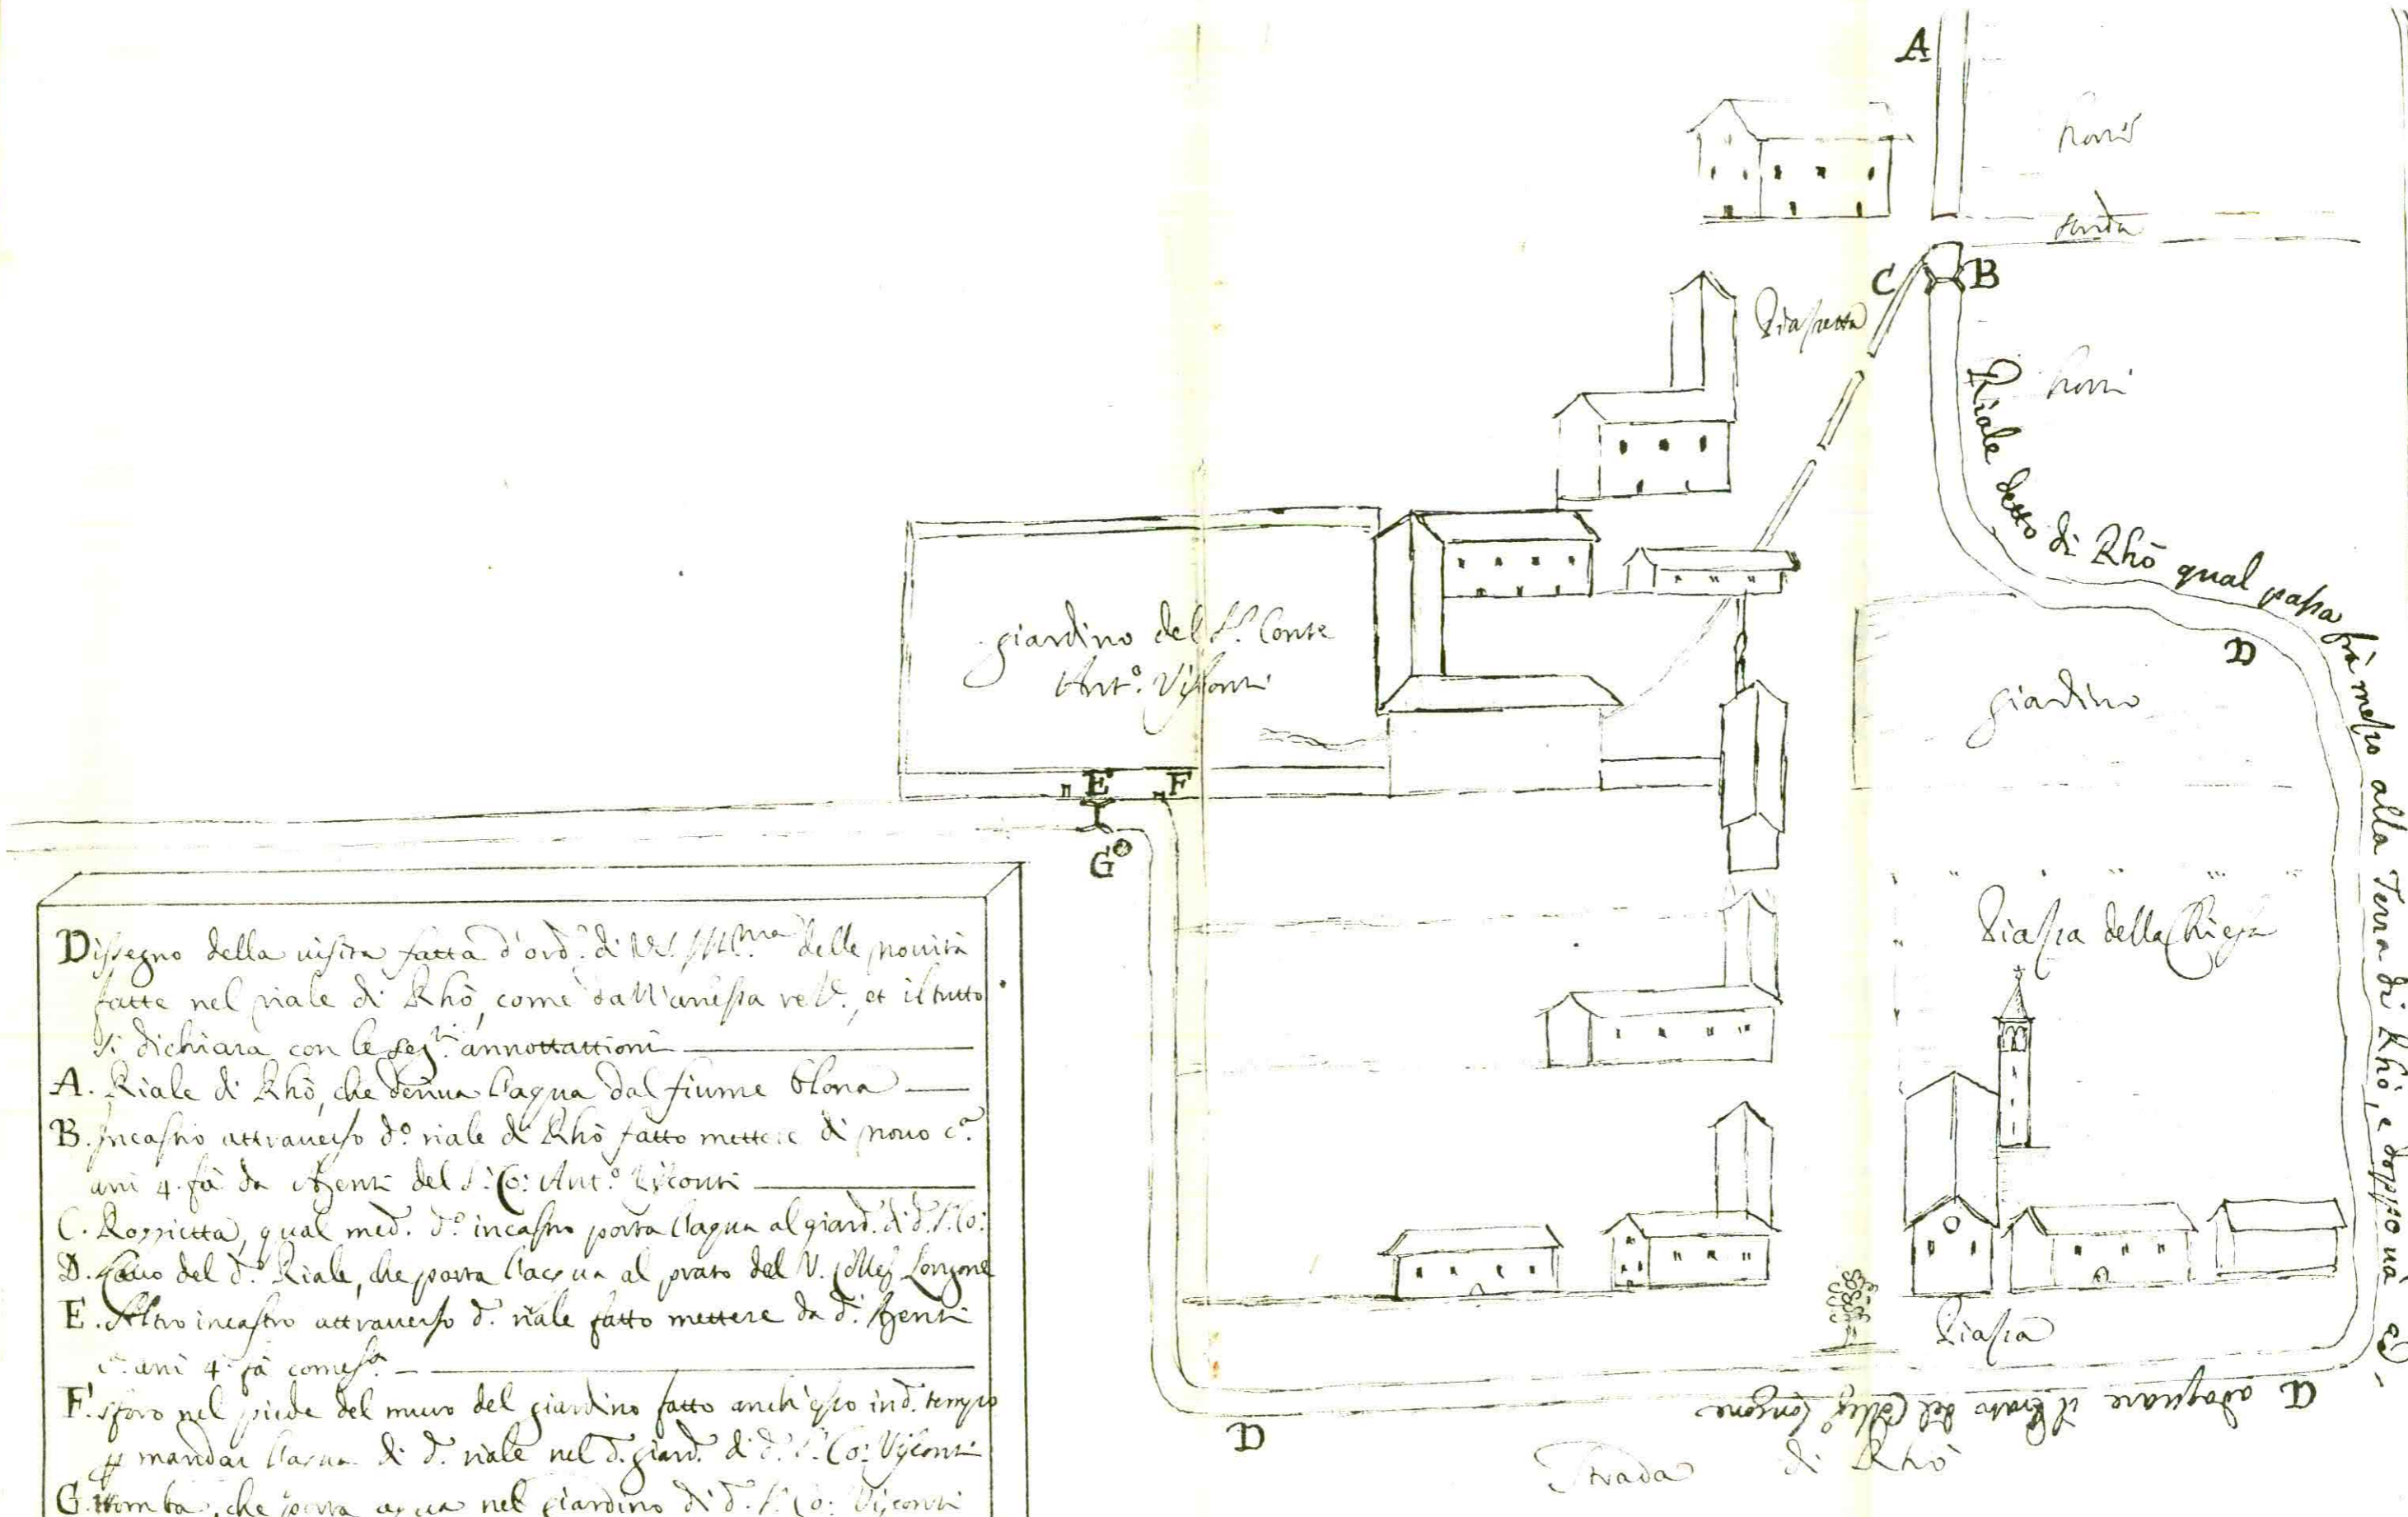 A
horti
strada
C
B
Piasetta
horti
Riale detto di Rhò qual passa frà messo alla Terra di Rhò, e doppo uà
D
giardino del S.r Conte
Ant.o Visconti
giardino
E
F
G
Piassa della Chiesa
Piassa
adaquare il prato del Colleg.o Longone
D
D
Strada di Rhò
Dissegno della uisita fatta d'ord.e di V.S. Ill.ma delle nouità
fatte nel riale di Rhò, come dall'anessa rel.e, et il tutto
si dichiara con le seg.ti annottattioni
A. Riale di Rhò, che deriua l'aqua dal fiume Olona
B. Incastro attrauerso d.o riale di Rhò fatto mettere di nouo c.a
ani 4 fà da Agenti del S.r Co: Ant.o Visconti
C. Roggietta, qual med.e d.o incastro porta l'aqua al giard.o di d.o S.r Co:
D. Cauo del d.o Riale, che porta l'acqua al prato del V. Colleg.o Longone
E. Altro incastro attrauerso d.o riale fatto mettere da d.i Agenti
c.a ani 4 fà come s.a
F. sforo nel piede del muro del giardino fatto anch'esso in d.o tempo
p mandar l'aqua di d.o riale nel d.o giard.o di d.o S.r Co: Visconti
G. tomba, che porta aqua nel giardino di d.o S.r Co: Visconti